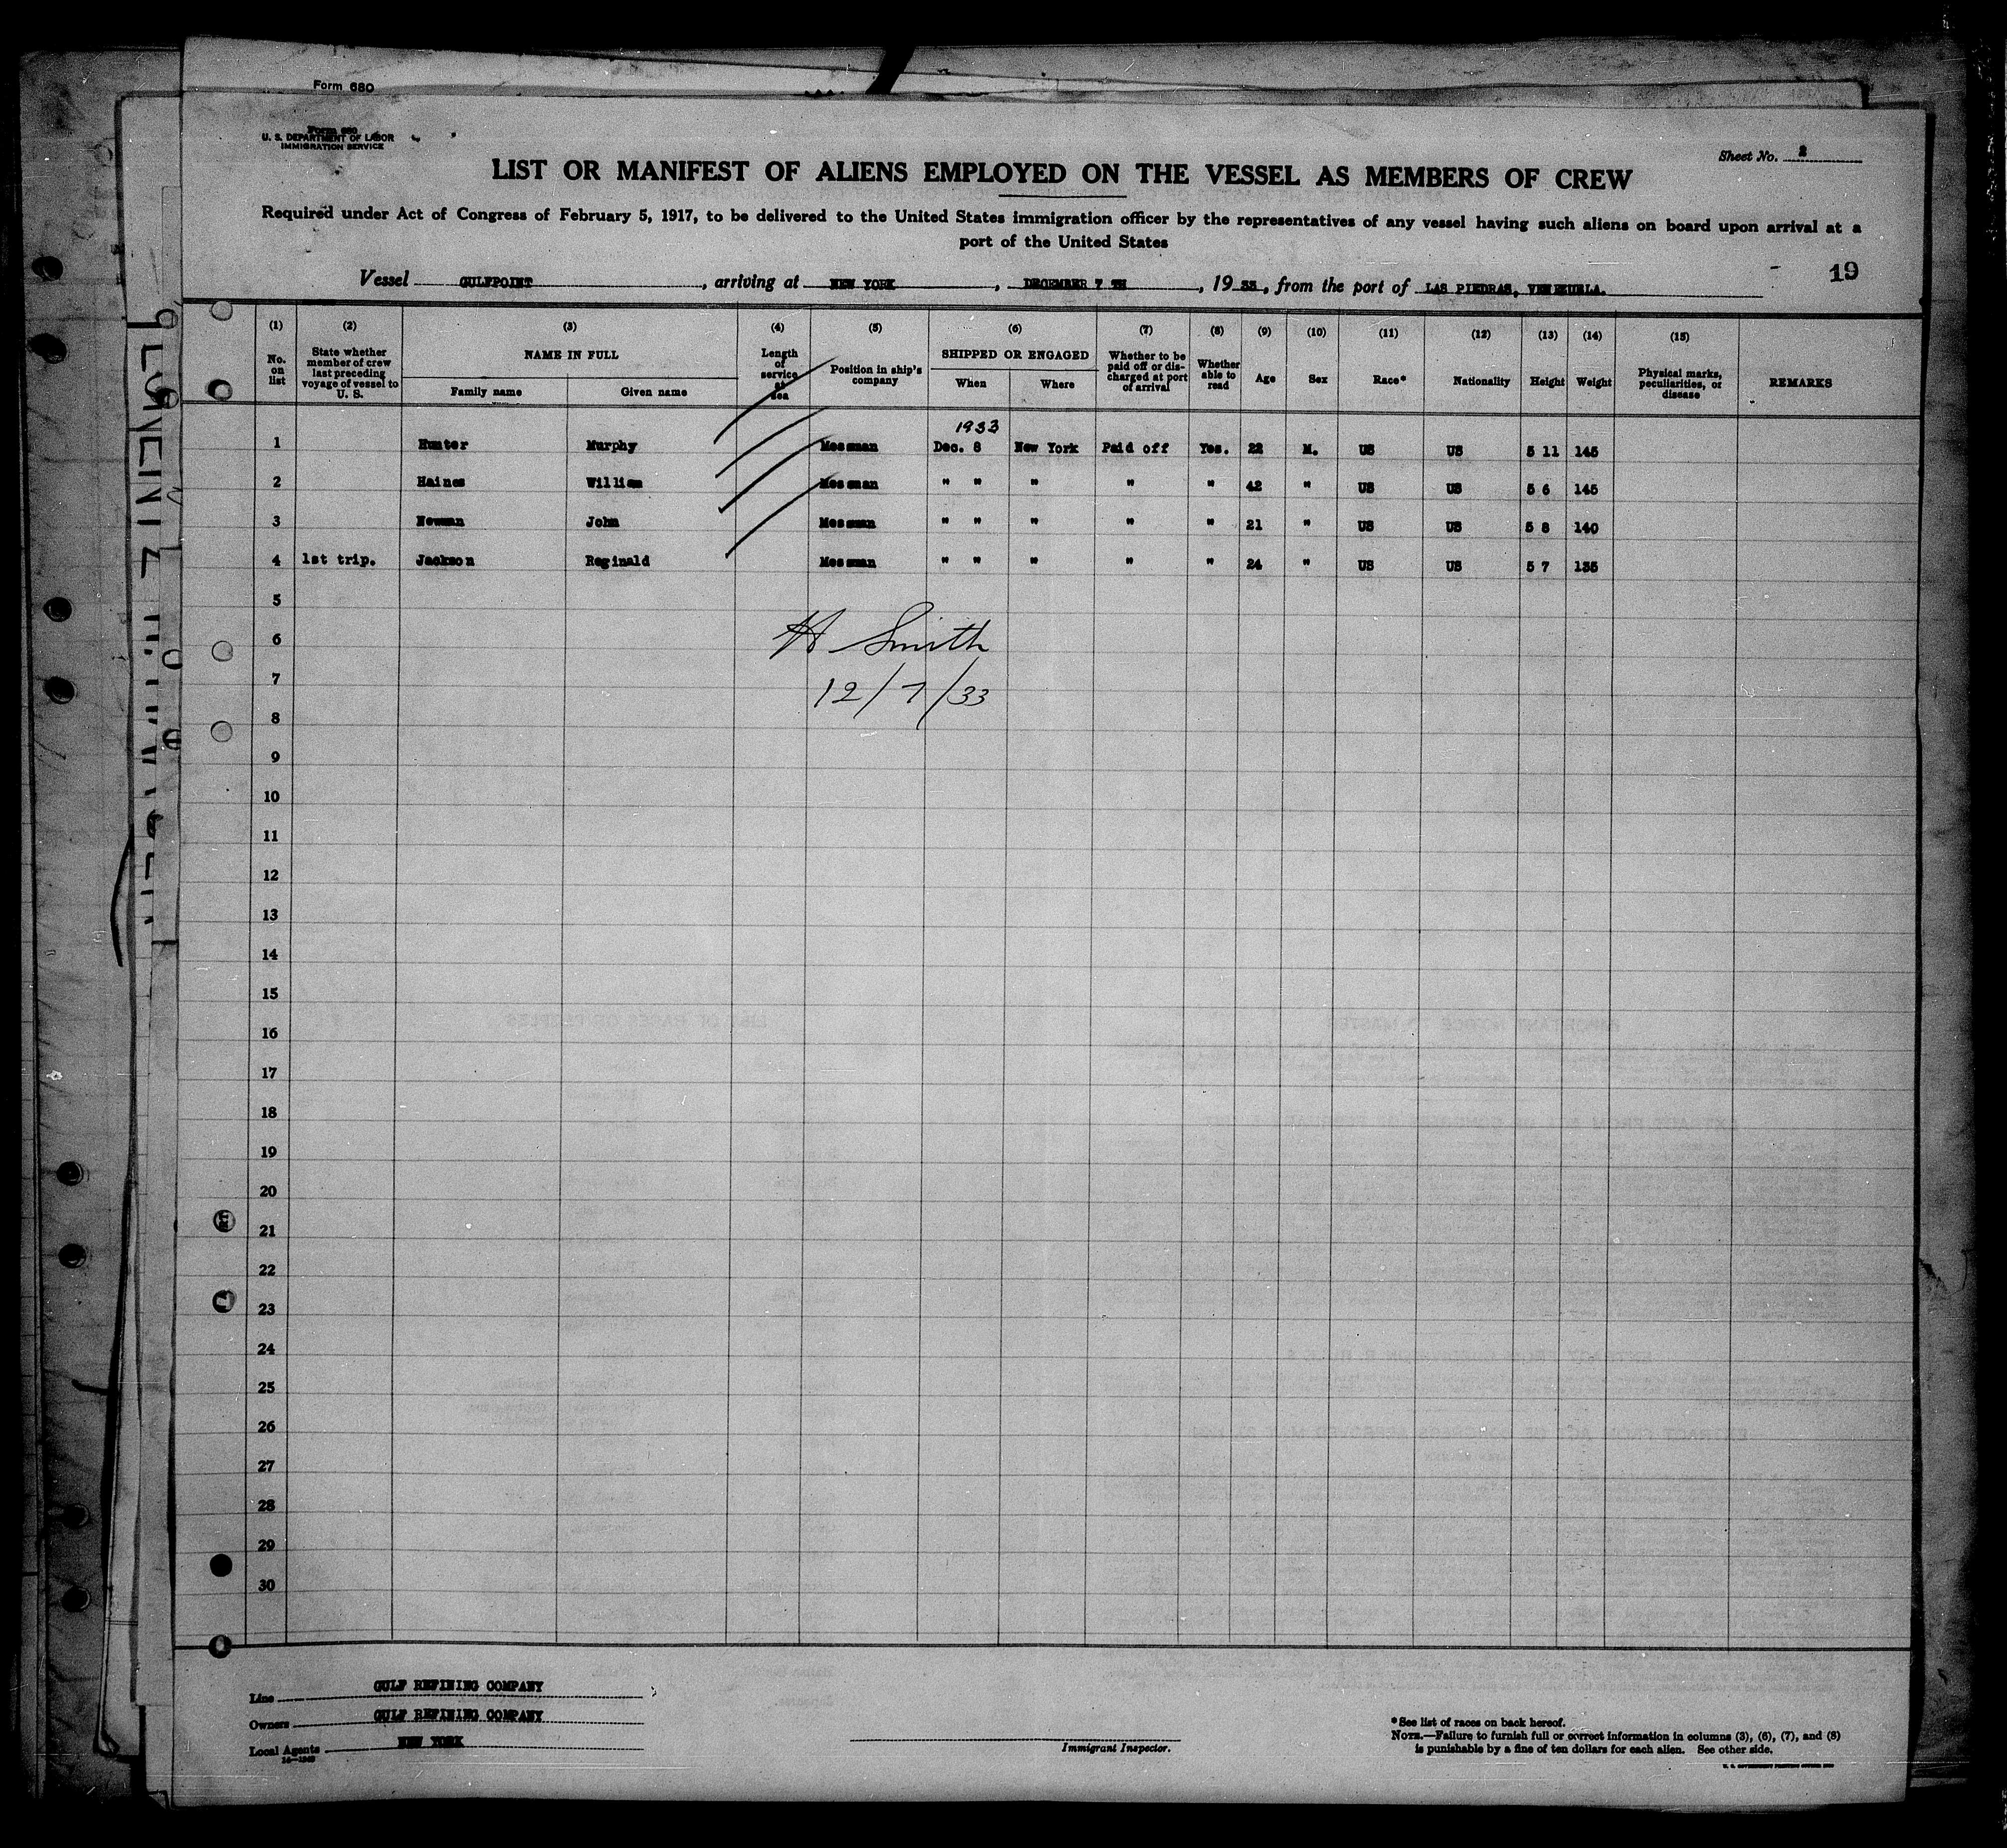 Form 680
U. S. DEPARTMENT OF LABOR
IMMIGRATION SERVICE
Sheet No. 2
LIST OR MANIFEST OF ALIENS EMPLOYED ON THE VESSEL AS MEMBERS OF CREW
Required under Act of Congress of February 5, 1917, to be delivered to the United States immigration officer by the representatives of any vessel having such aliens on board upon arrival at a
port of the United States
19
Vessel GULFPOINT, arriving at NEW YORK, DECEMBER 7 TH, 19 33, from the port of LAS PIEDRAS, VENEZUELA.
(1) (2) (3) (4) (5) (6) (7) (8) (9) (10) (11) (12) (13) (14) (15)
No. on list State whether member of crew last preceding voyage of vessel to U. S. NAME IN FULL Family name Given name Length of service at sea Position in ship's company SHIPPED OR ENGAGED When Where Whether to be paid off or discharged at port of arrival Whether able to read Age Sex Race* Nationality Height Weight Physical marks, peculiarities, or disease REMARKS
1933
1 Hunter Murphy Messman Dec. 8 New York Paid off Yes. 22 M. US US 5 11 145
2 Haines William Messman " " " " " 42 " US US 5 6 145
3 Newman John Messman " " " " " 21 " US US 5 8 140
4 1st trip. Jackson Reginald Messman " " " " " 24 " US US 5 7 135
5
H Smith
6
12/7/33
7
8
9
10
11
12
13
14
15
16
17
18
19
20
21
22
23
24
25
26
27
28
29
30
Line GULF REFINING COMPANY
Owners GULF REFINING COMPANY
Local Agents NEW YORK
Immigrant Inspector.
*See list of races on back hereof.
NOTE.—Failure to furnish full or correct information in columns (3), (6), (7), and (8)
is punishable by a fine of ten dollars for each alien. See other side.
U. S. GOVERNMENT PRINTING OFFICE